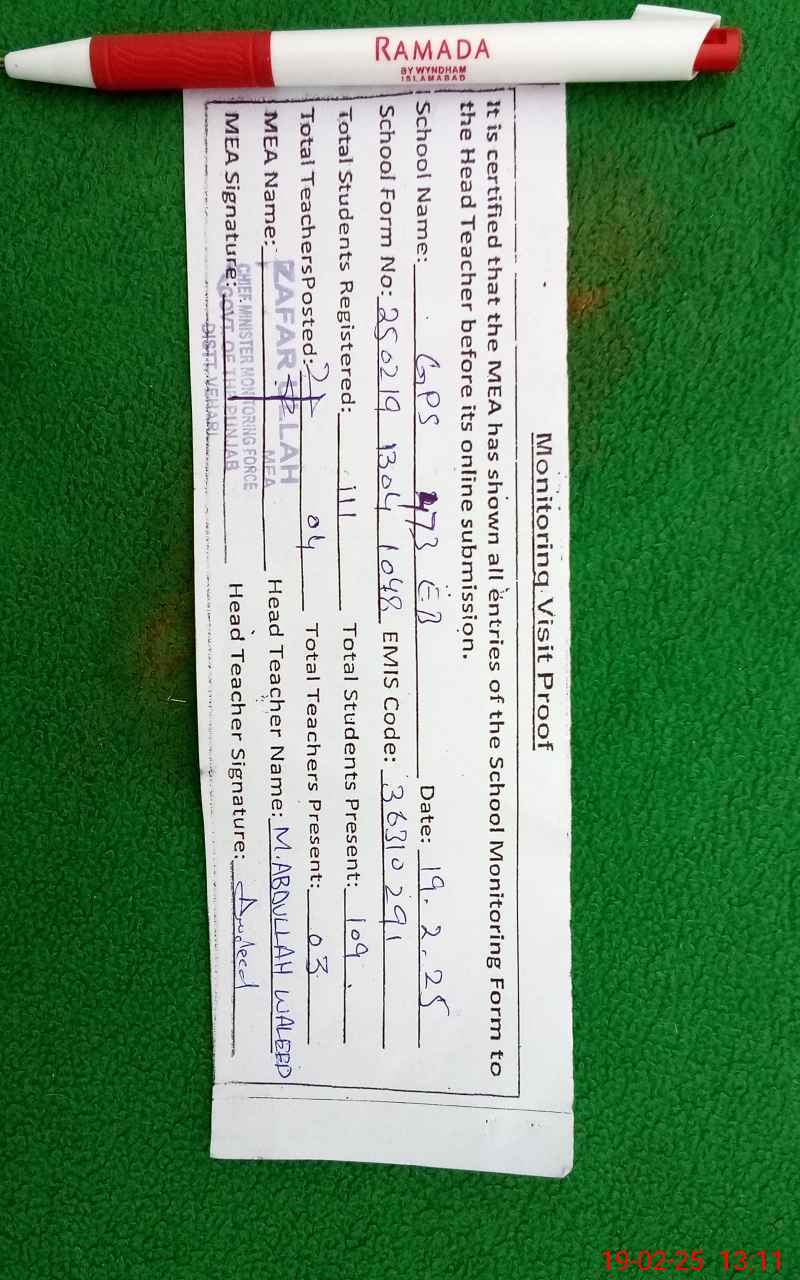 RAMADA
BY WYNDHAM
ISLAMABAD
Monitoring Visit Proof
It is certified that the MEA has shown all entries of the School Monitoring Form to
the Head Teacher before its online submission.
School Name: GPS 473 EB Date: 19.2.25
School Form No: 250219 1304 1048 EMIS Code: 36310291
Total Students Registered: 111 Total Students Present: 109
Total TeachersPosted: 04 Total Teachers Present: 03
MEA Name: Head Teacher Name: M.ABDULLAH WALEED
MEA Signature: Head Teacher Signature:
ZAFAR ULLAH
MEA
CHIEF MINISTER MONITORING FORCE
GOVT OF THE PUNJAB
DISTT. VEHARI
19-02-25 13:11